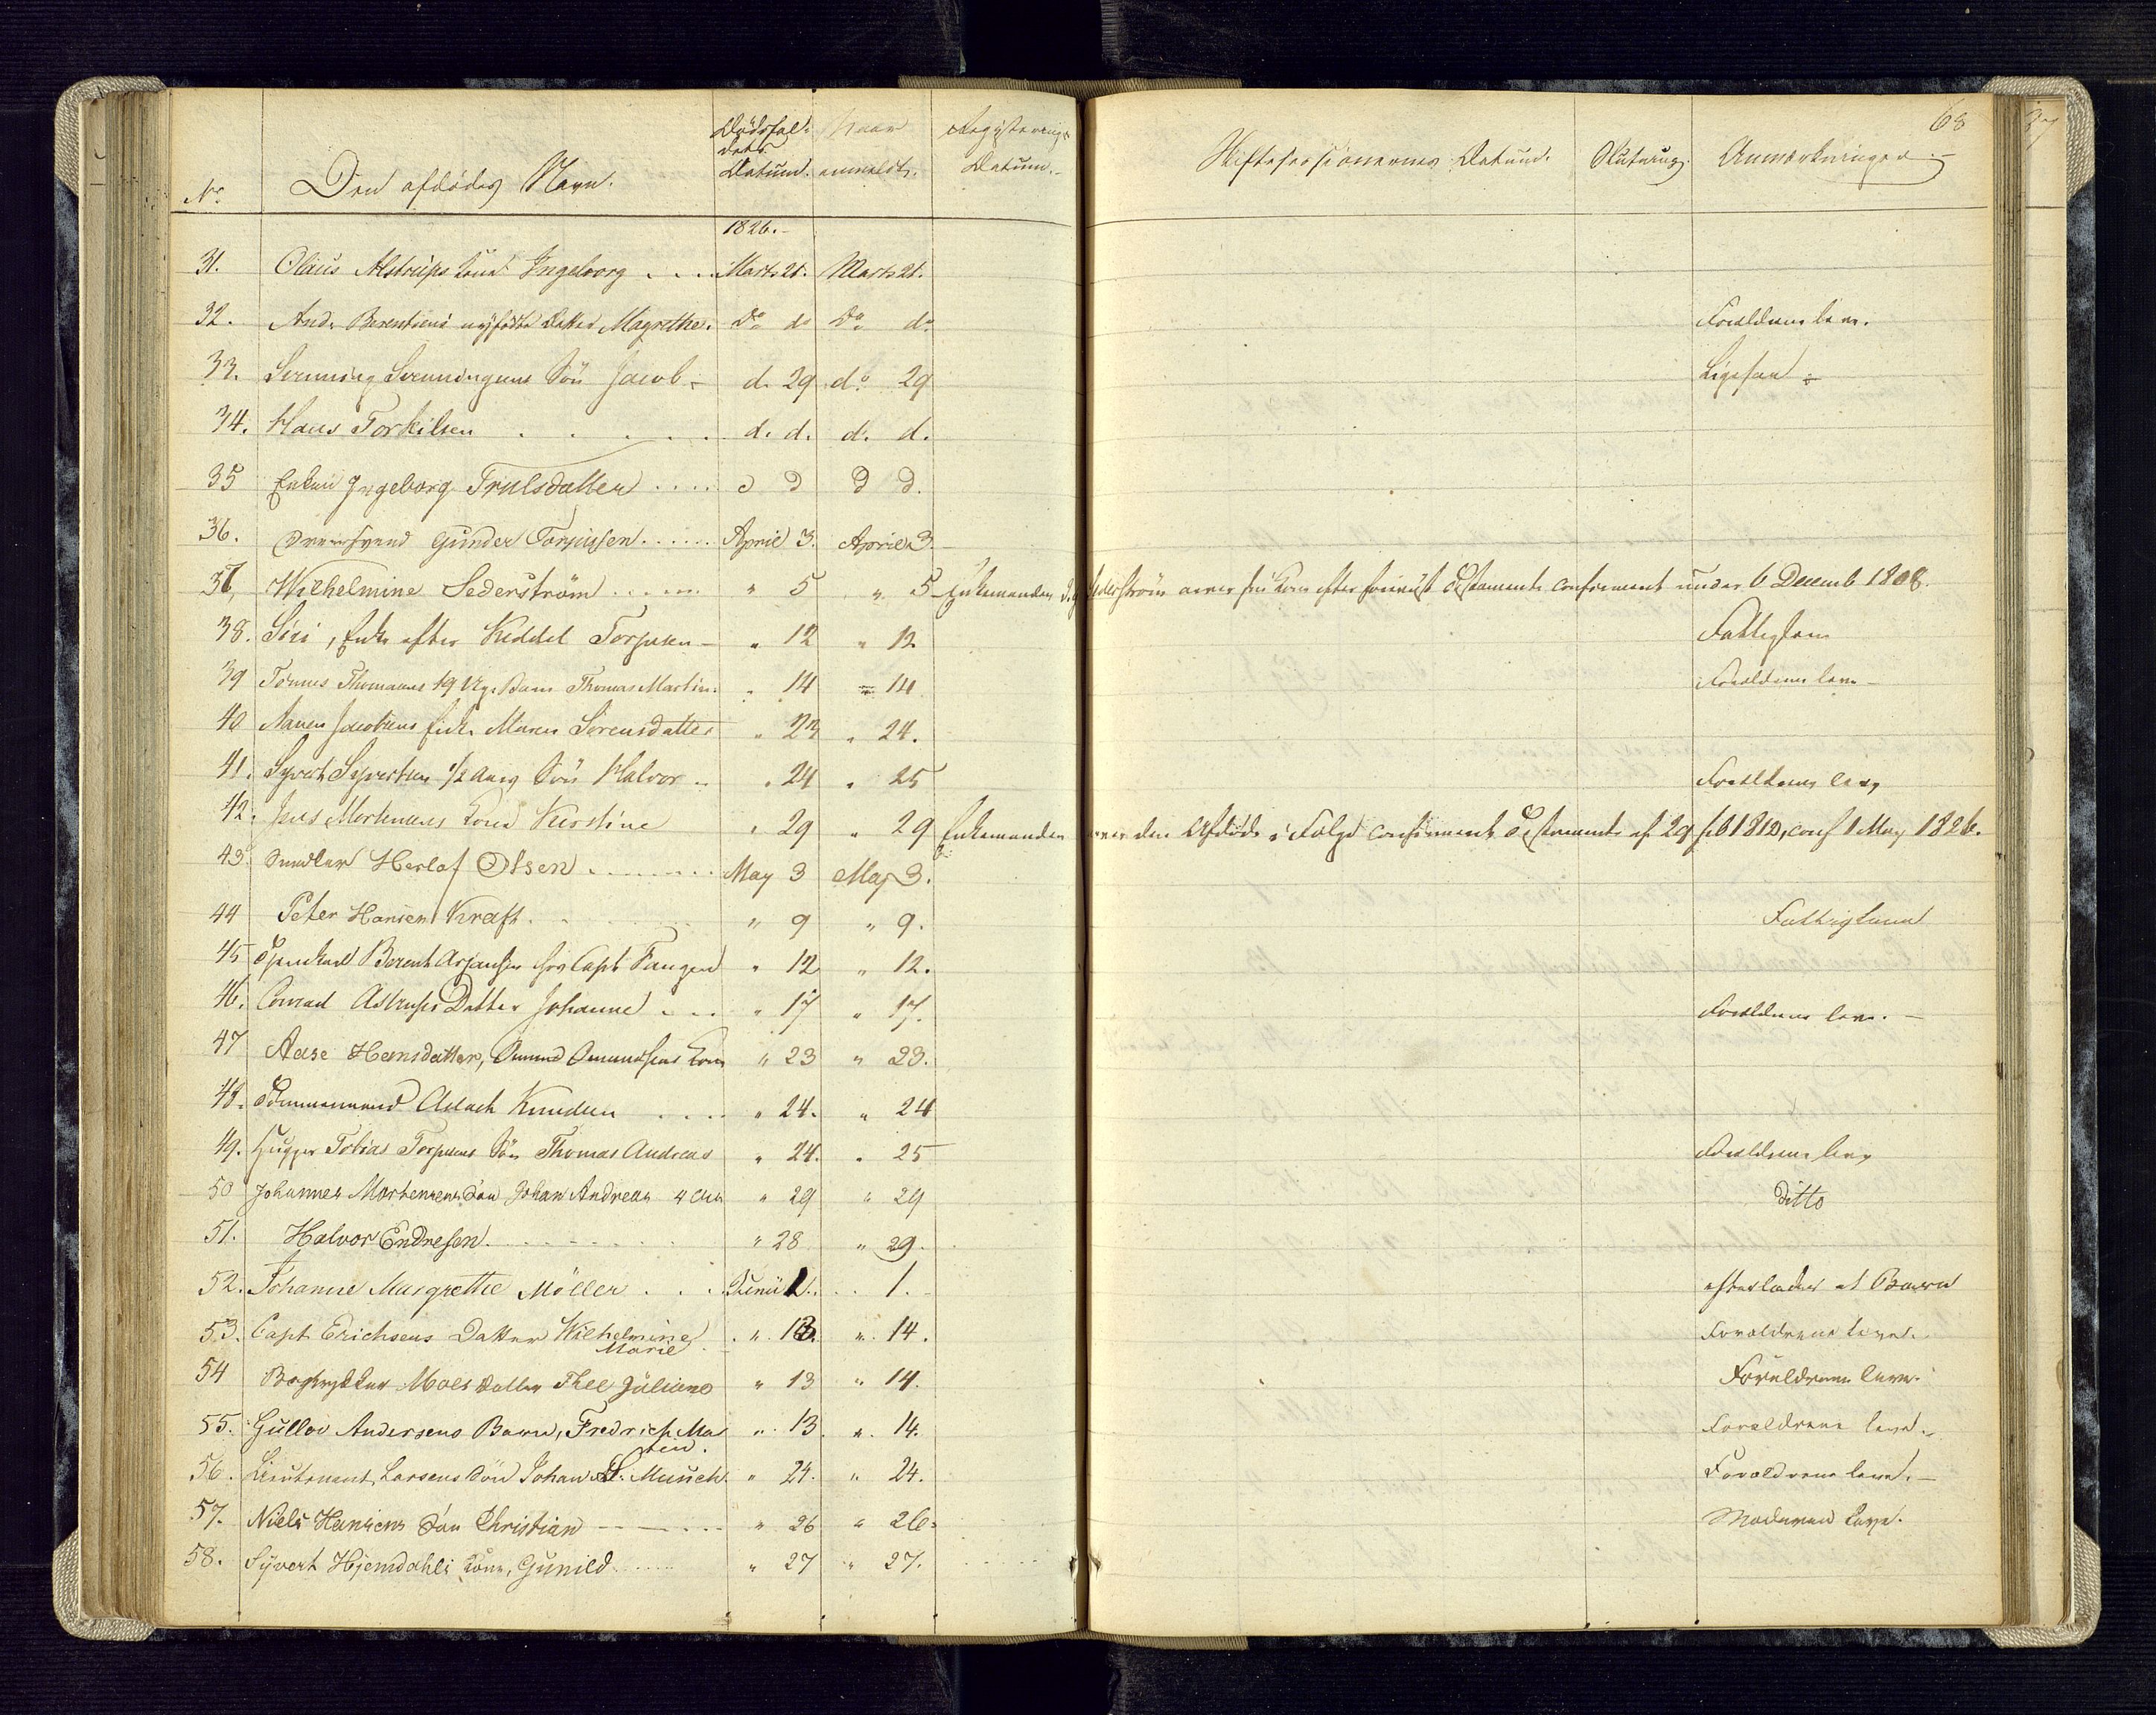 68
No. Den afdødes Navn. Dødsfaldets Datum. Naar anmeldt. Registerings Datum. Skiftesessionernes Datum. Slutning. Anmærkninger.
1826.
31. Olaus Alstrups Kone Ingeborg .... Marts 21. Marts 21.
32. And. Berentsens nyfødte Datter Magrethe. Do do Do do Forældrene leve.
33. Svenning Svenningsens Sön Jacob d. 29 do 29 Ligesaa
34. Hans Torkilsen d. d. d. d.
35 Enken Ingeborg Trulsdatter .... d d d d.
36. Gunder Torjusen ...... April 3. April 3.
37, Wilhelmine Sederström ...... " 5 " 5 Enkemanden Sederström arver sin Kone efter Testamente confirmeret under 6 Decemb 1808.
38. Siri, Enke efter Keddel Torjusen " 12 " 12 Fattiglem
39 Tönnes Thomasens 19 Ugr. Barn Thomas Martin. " 14 " 14 Forældrene leve
40 Aanen Jacobsens Enke Maren Sörensdatter " 23 " 24.
41. Syvert Syvertsen 1/2 Aars Sön Halvor " 24 " 25 Forældrene leve
42. Jens Mortensens Kone Kirstine " 29 " 29 Enkemanden arver den Afdöde i Fölge confirmeret Testamente af 29 feb 1812, conf 1 May 1826.
43. Snedker Herlof Olsen ........ May 3 May 3.
44 Peter Hansen Kraft. " 9 " 9. Fattiglem
45 Berent Arjansen hos Capt Fanger " 12 " 12.
46. Conrad Astrups Datter Johanne ... " 17 " 17. Forældrene leve.
47 Aase Hansdatter, Omund Omundsens Kone " 23 " 23.
48. Tömmermand Aslach Knudsen .... " 24. " 24
49. Tobias Torjusens Sön Thomas Andreas " 24. " 25 Forældrene leve
50 Johannes Mortensens Sön Johan Andreas 4 Aar " 29 " 29 Ditto
51. Halvor Endresen. " 28 " 29.
52. Johanne Margrethe Möller ... Junii 1. 1. efterlader et Barn
53. Capt Erichsens Datter Wilhelmine Marie " 13. " 14. Forældrene leve.
54 Bogtrykker Moes Datter Thee Juliane " 13 " 14. Forældrene leve.
55. Gullov Andersens Barn, Fredrich Martin. " 13. " 14. Forældrene leve.
56. Lieutenant Larsens Sön Johan S. Munch " 24. " 24. Forældrene leve.
57. Niels Hansens Sön Christian " 26 " 26. Moderen leve.
58. Syvert Hjemdahls Kone, Gunild " 27 " 27.